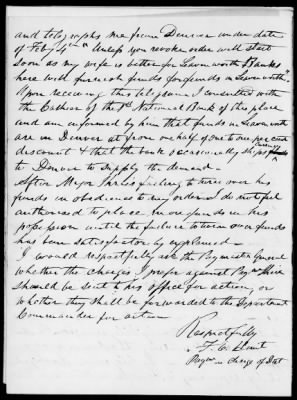 and telegraphs me from Denver under date
of Feby 4th "Unless you revoke order will start
soon as my wife is better for Leavenworth. Banks
here will furnish funds for funds in Leavenworth"
Upon receiving this telegram I consulted with
the Cashier of the 1st National Bank of this place
and am informed by him that funds in Leavenworth
are in Denver at from one half of one to one per cent
discount & that the bank occasionally ships currency
to Denver to supply the demand.
After Major failing to turn over his
funds in obedience to my orders I do not feel
authorized to place more funds in his
possession until the failure to turn over funds
has been satisfactorily explained.
I would respectfully ask the Paymaster General
whether the charges I prefer against Paymr
should be sent to his office for action, or
whether they shall be forwarded to the Department
Commander for action
Respectfully
Paymr in charge of Dist